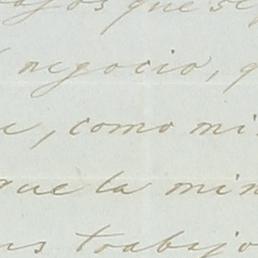 que se
negocio, q
e, como mi
que la min
us trabajo